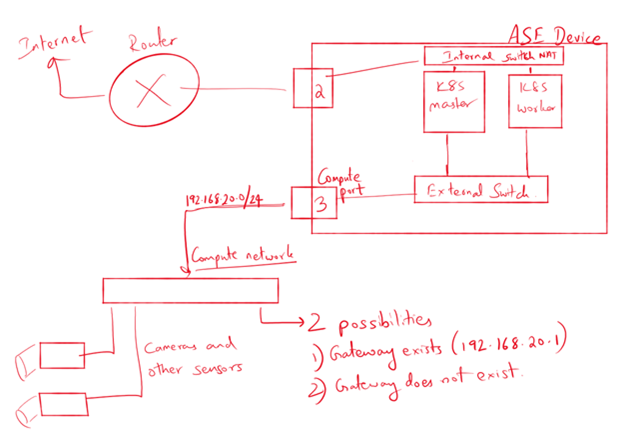 Internet
Router
ASE Device
Internal Switch NAT
2
K8S
master
K8S
worker
Compute
port
3
External Switch
192.168.20.0/24
Compute network
Cameras and
other sensors
2 possibilities
1) Gateway exists (192.168.20.1)
2) Gateway does not exist.